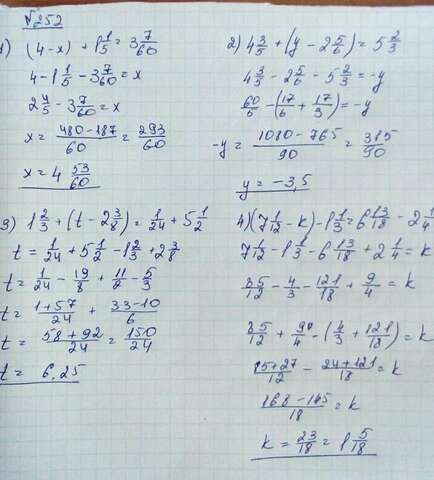 №252
1) (4-x) + 1 1/5 = 3 7/60
4 - 1 1/5 - 3 7/60 = x
2 4/5 - 3 7/60 = x
x = (480-187)/60 = 293/60
x = 4 53/60
2) 4 3/5 + (y - 2 5/6) = 5 2/3
4 3/5 - 2 5/6 - 5 2/3 = -y
60/5 - (17/6 + 17/3) = -y
-y = (1080-765)/90 = 315/90
y = -3,5
3) 1 2/3 + (t - 2 3/8) = 1/24 + 5 1/2
t = 1/24 + 5 1/2 - 1 2/3 + 2 3/8
t = 1/24 - 19/8 + 11/2 - 5/3
t = (1+57)/24 + (33-10)/6
t = (58+92)/24 = 150/24
t = 6,25
4) (7 1/12 - k) - 1 1/3 = 6 13/18 - 2 1/4
7 1/12 - 1 1/3 - 6 13/18 + 2 1/4 = k
85/12 - 4/3 - 121/18 + 9/4 = k
85/12 + 9/4 - (4/3 + 121/18) = k
(85+27)/12 - (24+121)/18 = k
(168-145)/18 = k
k = 23/18 = 1 5/18